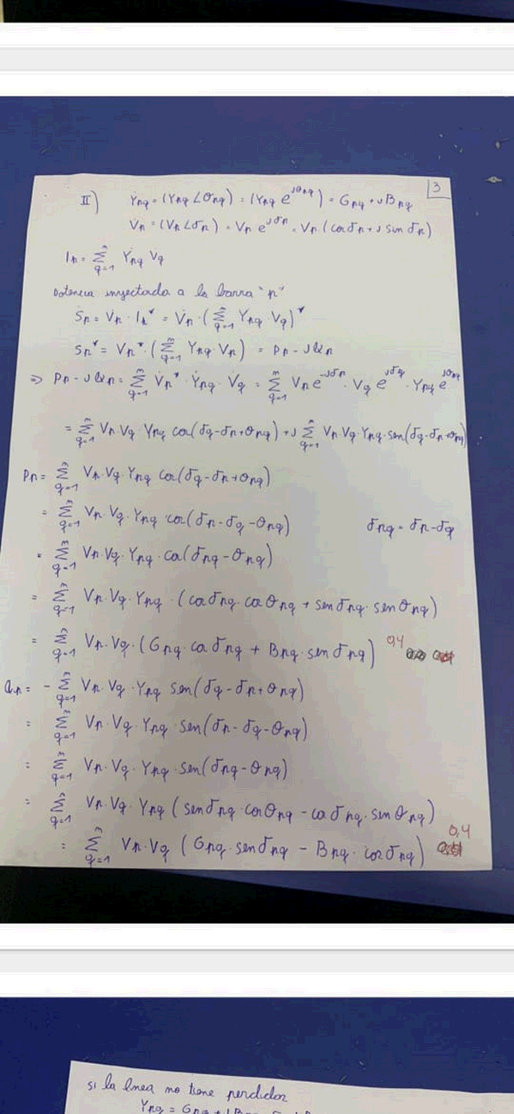 3
II) Ẏnq = (Ynq ∠θnq) = (Ynq e^jθnq) = Gnq + jBnq
V̇n = (Vn ∠δn) = Vn e^jδn = Vn (cos δn + j sin δn)
İn = Σ(q=1, n) Ẏnq V̇q
Potencia inyectada a la barra "n"
Ṡn = V̇n · In* = V̇n · (Σ(q=1, n) Ynq Vq)*
Sn* = Vn* · (Σ(q=1, n) Ynq Vn) = Pn - jQn
⇒ Pn - jQn = Σ(q=1, n) V̇n* · Ẏnq · V̇q = Σ(q=1, n) Vn e^-jδn · Vq e^jδq · Ynq e^jθnq
= Σ(q=1, n) Vn Vq Ynq cos(δq - δn + θnq) + j Σ(q=1, n) Vn · Vq · Ynq · sen(δq - δn + θnq)
Pn = Σ(q=1, n) Vn Vq · Ynq cos(δq - δn + θnq)
= Σ(q=1, n) Vn Vq · Ynq cos(δn - δq - θnq) δnq = δn - δq
= Σ(q=1, n) Vn · Vq · Ynq · cos(δnq - θnq)
= Σ(q=1, n) Vn · Vq · Ynq · (cos δnq cos θnq + sen δnq · sen θnq)
= Σ(q=1, n) Vn · Vq · (Gnq · cos δnq + Bnq · sin δnq) 0,4
Qn = - Σ(q=1, n) Vn · Vq · Ynq sen(δq - δn + θnq)
= Σ(q=1, n) Vn · Vq · Ynq · sen(δn - δq - θnq)
= Σ(q=1, n) Vn · Vq · Ynq · sen(δnq - θnq)
= Σ(q=1, n) Vn · Vq · Ynq (sen δnq · cos θnq - cos δnq · sin θnq)
= Σ(q=1, n) Vn · Vq (Gnq · sen δnq - Bnq · cos δnq) 0,4
si la linea no tiene perdidas